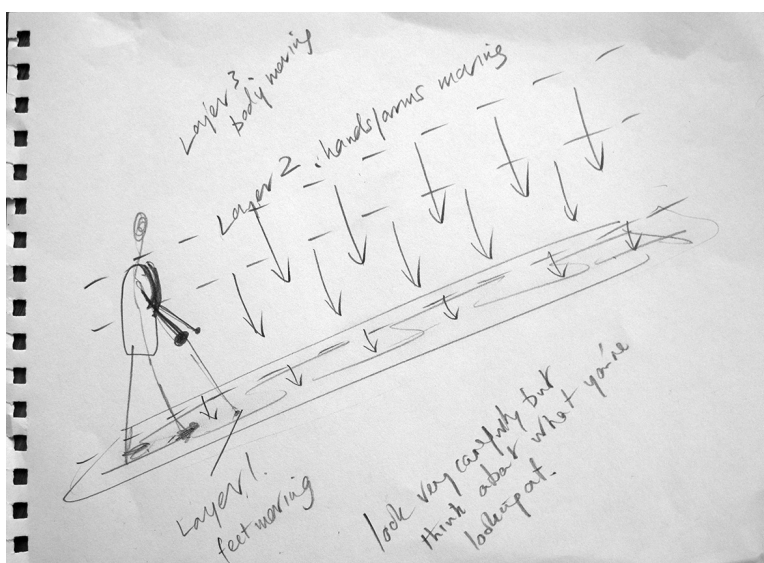 Layer 3.
body moving
Layer 2. hands/arms moving
Layer 1.
feet moving
look very carefully but
think about what you're
looking at.